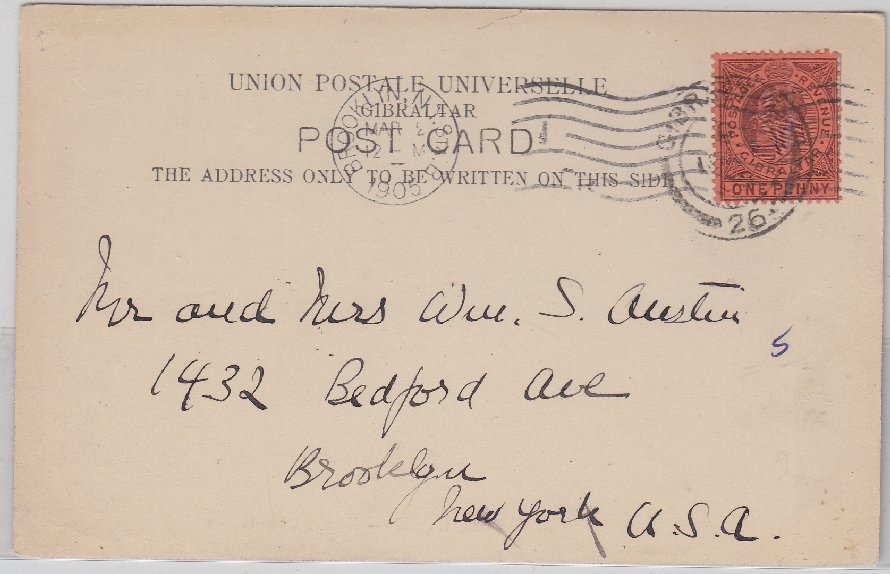 UNION POSTALE UNIVERSELLE
GIBRALTAR
POST CARD
THE ADDRESS ONLY TO BE WRITTEN ON THIS SIDE
BROOKLYN, N.Y.
MAR 2
1905
POSTAGE & REVENUE
GIBRALTAR
ONE PENNY
26
Mr and Mrs Wm. S. Austin
5
1432 Bedford Ave
Brooklyn
New York U.S.A.